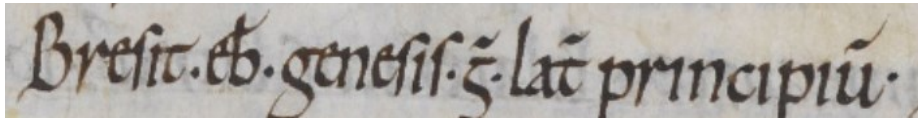 Bresit·eb̄·genesis·ḡ·lat̄ principiū·